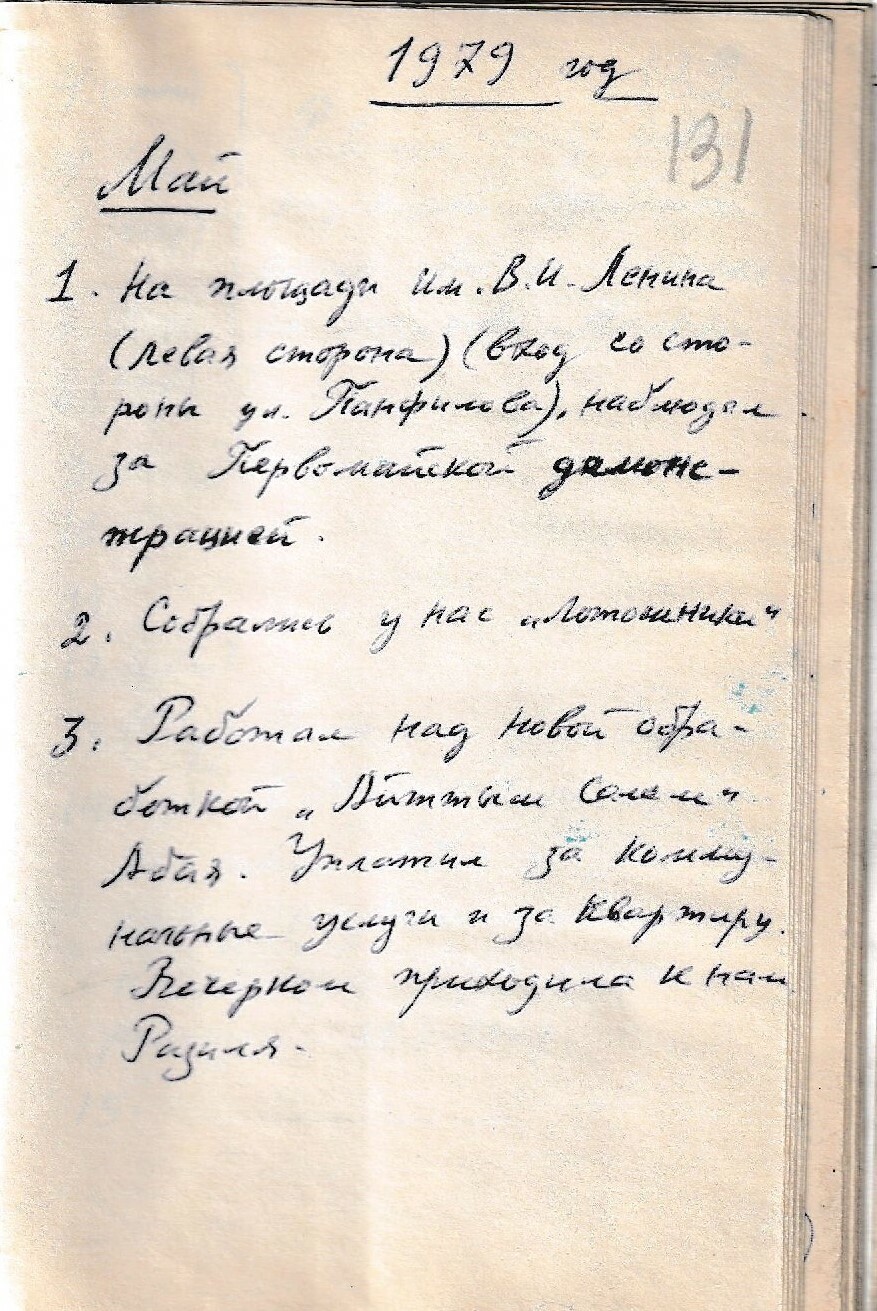 1979 год
131
Май
1. На площади им. В.И. Ленина
(левая сторона) (вход со сто-
роны ул. Панфилова), наблюдал
за Первомайской демонс-
трацией.
2. Собрались у нас „Лотошники"
3. Работал над новой обра-
боткой „Айттым Салем"
Абая. Уплатил за комму-
нальные услуги и за квартиру.
Вечерком приходила к нам
Разиля.